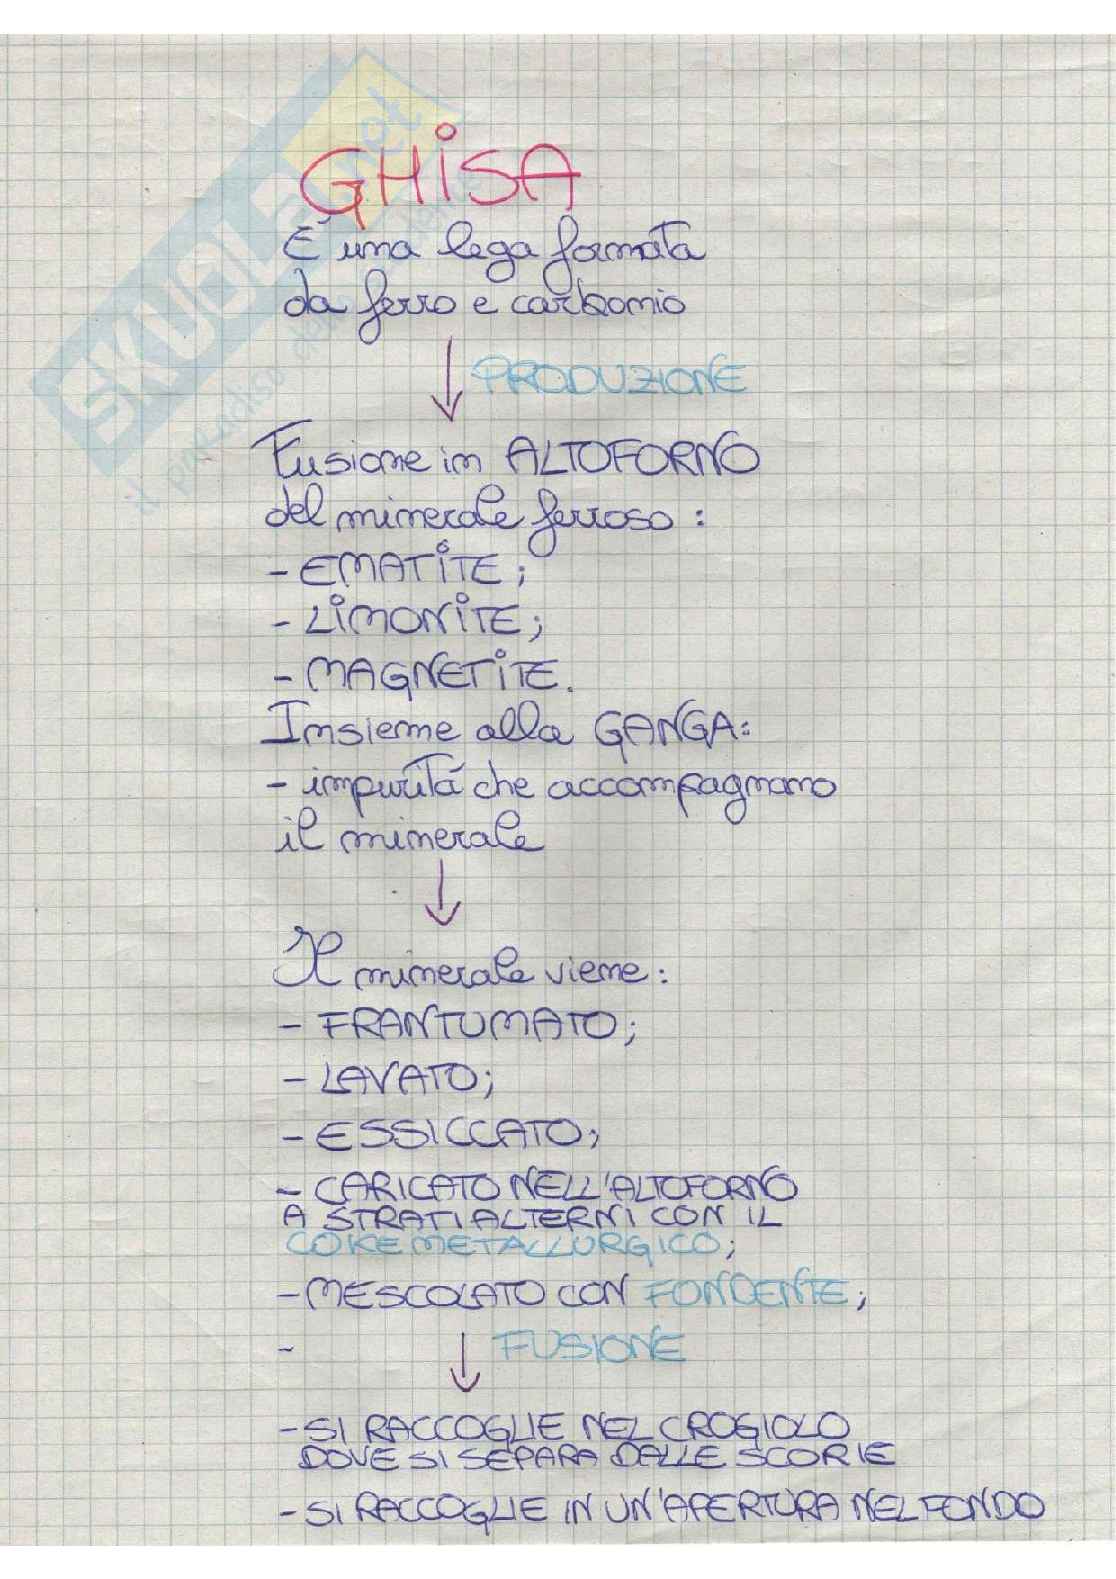 GHISA
È una lega formata
da ferro e carbonio
PRODUZIONE
Fusione in ALTOFORNO
del minerale ferroso:
- EMATITE;
- LIMONITE;
- MAGNETITE.
Insieme alla GANGA:
- impurità che accompagnano
il minerale
Il minerale viene:
- FRANTUMATO;
- LAVATO;
- ESSICCATO;
- CARICATO NELL'ALTOFORNO
A STRATI ALTERNI CON IL
COKE METALLURGICO;
- MESCOLATO CON FONDENTE;
- FUSIONE
- SI RACCOGLIE NEL CROGIOLO
DOVE SI SEPARA DALLE SCORIE
- SI RACCOGLIE IN UN'APERTURA NEL FONDO
SKUOLA.net
il paradiso